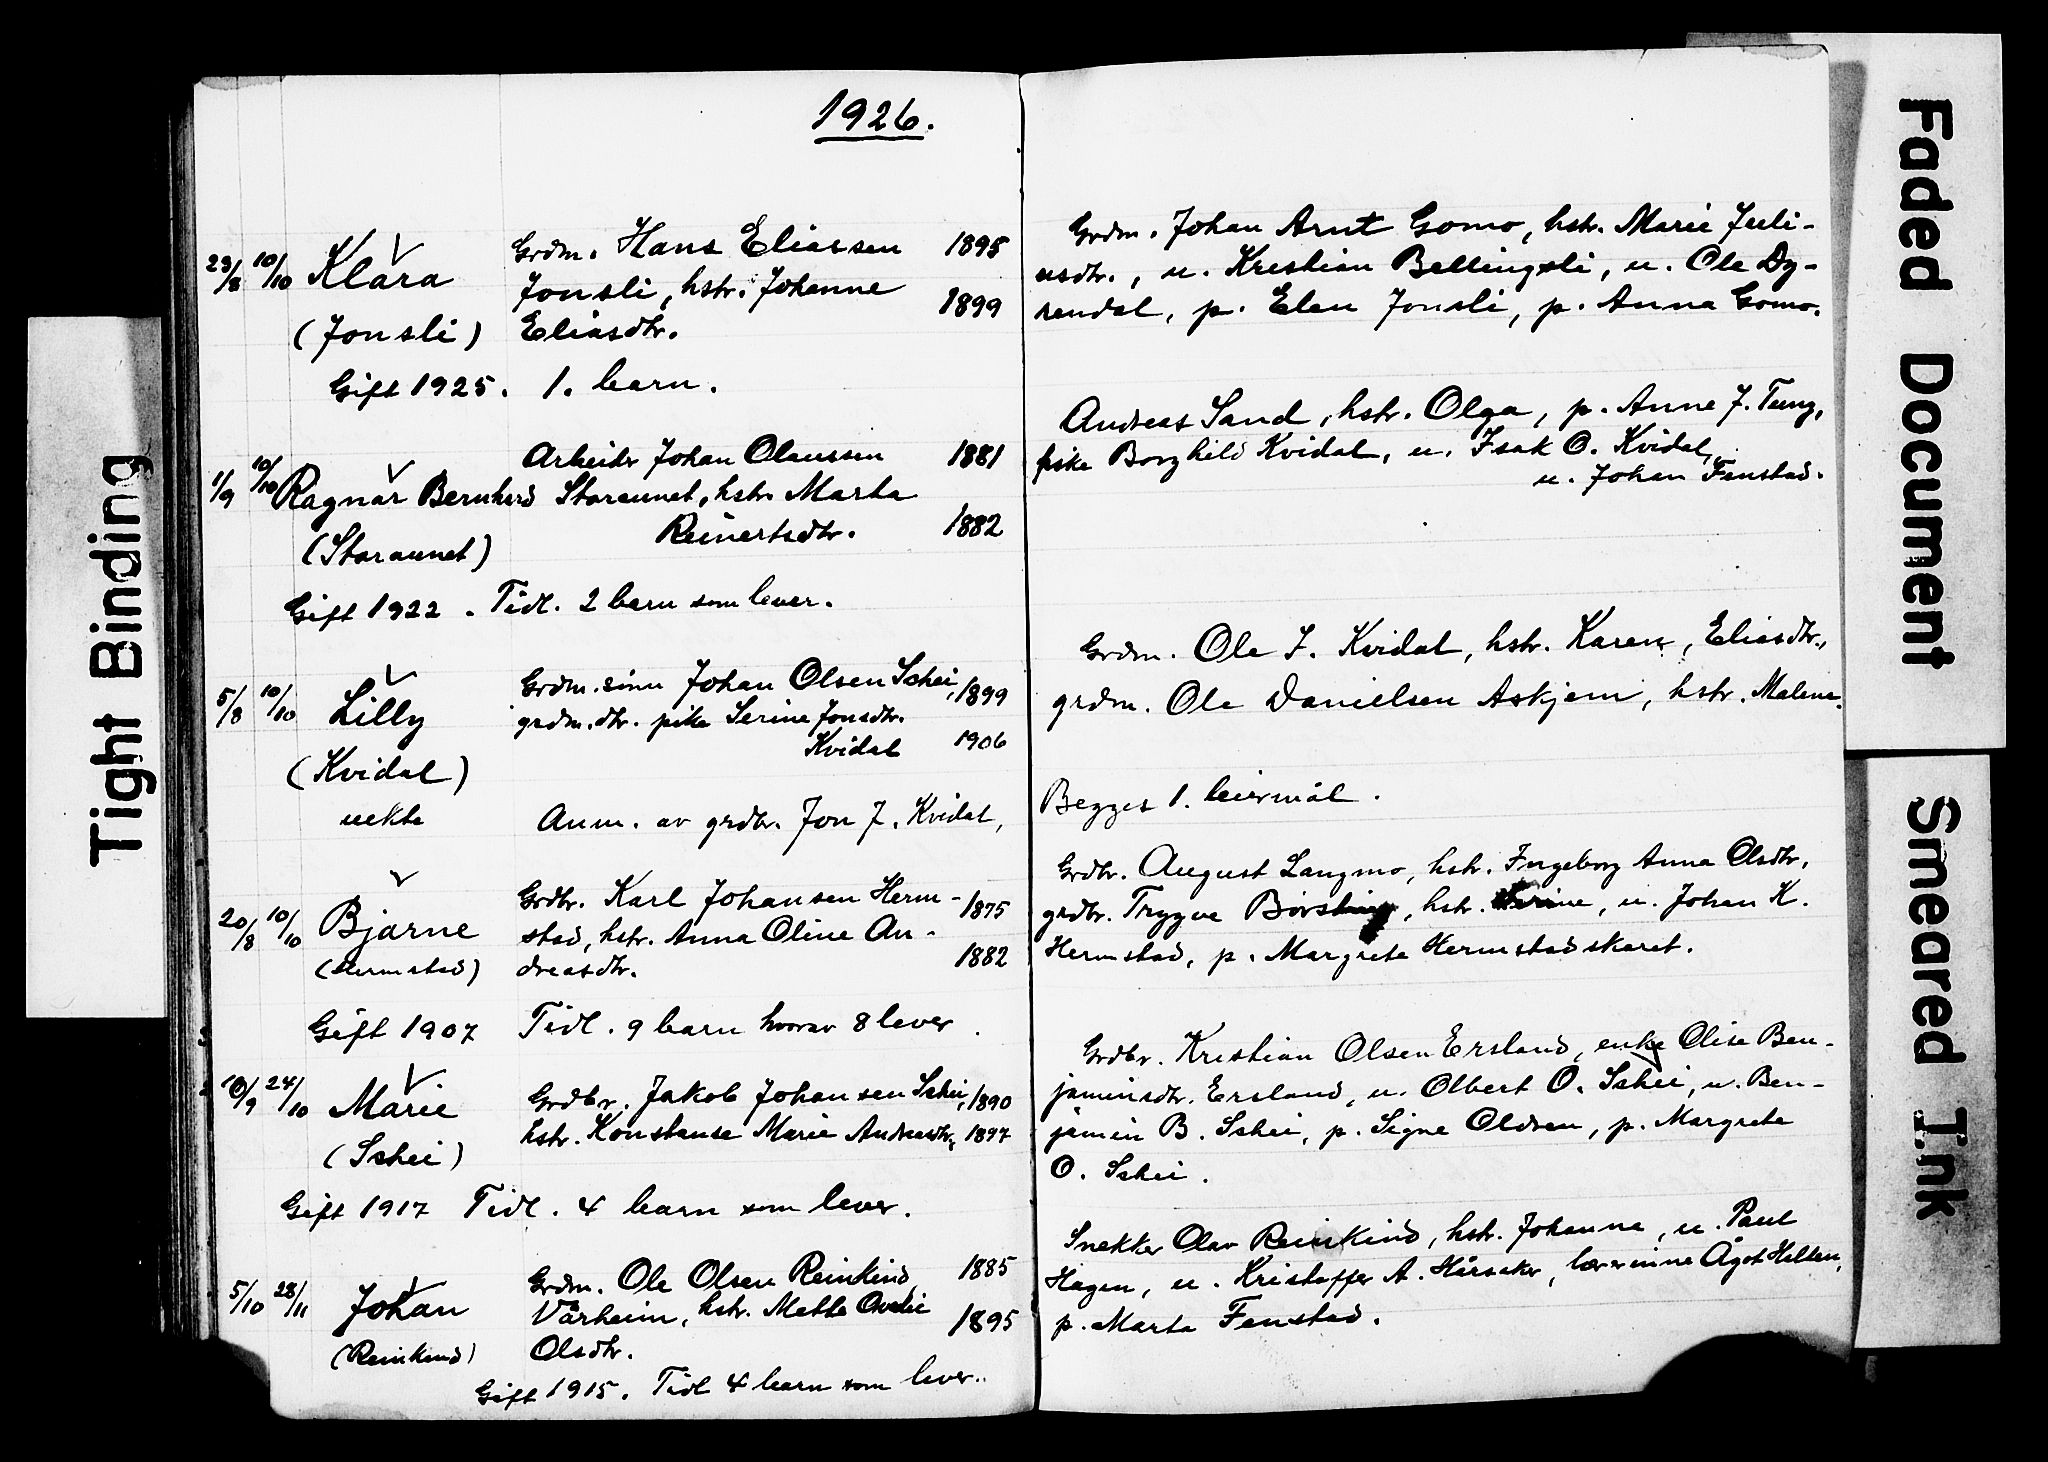 1926.
23/8 10/10 Klara Grdm. Hans Eliassen 1895
Jonsli, hstr. Johanne 1899
(Jonsli) Eliasdtr.
Gift 1925. 1. barn.
1/9 10/10 Ragnar Bernhard Arbeider Johan Olaussen 1881
Storaunet, hstr. Marta
(Storaunet) Reinertsdtr. 1882
Gift 1922. Tidl. 2 barn som lever.
5/8 10/10 Lilly Grdm.sønn Johan Olsen Schei, 1899
grdm.dtr. pike Serine Jonsdtr.
(Kvidal) Kvidal 1906
uekte Anm. av grdbr. Jon J. Kvidal,
20/8 10/10 Bjarne Grdbr. Karl Johansen Herm- 1875
stad, hstr. Anna Oline An-
(Hermstad) dreasdtr. 1882
Gift 1907 Tidl. 9 barn hvorav 8 lever.
10/9 24/10 Marie Grdbr. Jakob Johansen Schei, 1890
hstr. Konstanse Marie Andreasdtr., 1897
(Schei)
Gift 1917 Tidl. 4 barn som lever.
5/10 28/11 Johan Grdm. Ole Olsen Reinkind, 1885
Vårheim, hstr. Mette 1895
(Reinkind) Olsdtr.
Gift 1915. Tidl 4 barn som lever.
Grdm. Johan Arnt Gomo, hstr. Marie Juli-
usdtr., u. Kristian Bellingsli, u. Ole Dy-
rendal, p. Elen Jonsli, p. Anna Gomo.
Andreas Sand, hstr. Olga, p. Anne J. Tung,
pike Borghild Kvidal, u. Isak O. Kvidal,
u. Johan Fenstad.
Grdm. Ole I. Kvidal, hstr. Karen, Eliasdtr.,
grdm. Ole Danielsen Askjem, hstr. Malene.
Begges 1. leiermål.
Grdbr. August Langmo, hstr. Ingeborg Anna Olsdtr,
grdbr. Trygve hstr. u. Johan K.
Hermstad, p. Margrete Hermstadskaret.
Grdbr. Kristian Olsen Ersland, enke Olise Ben-
jaminsdtr. Ersland, u. Olbert O. Schei, u. Ben-
jamin B. Schei, p. Signe Oldren, p. Margrete
O. Schei.
Snekker Olav Reinkind, hstr. Johanna, u. Paul
Hagen, u. Kristoffer A. lærerinne Ågot Hilten,
p. Marta Fenstad.
Tight Binding
Faded Document
Smeared Ink